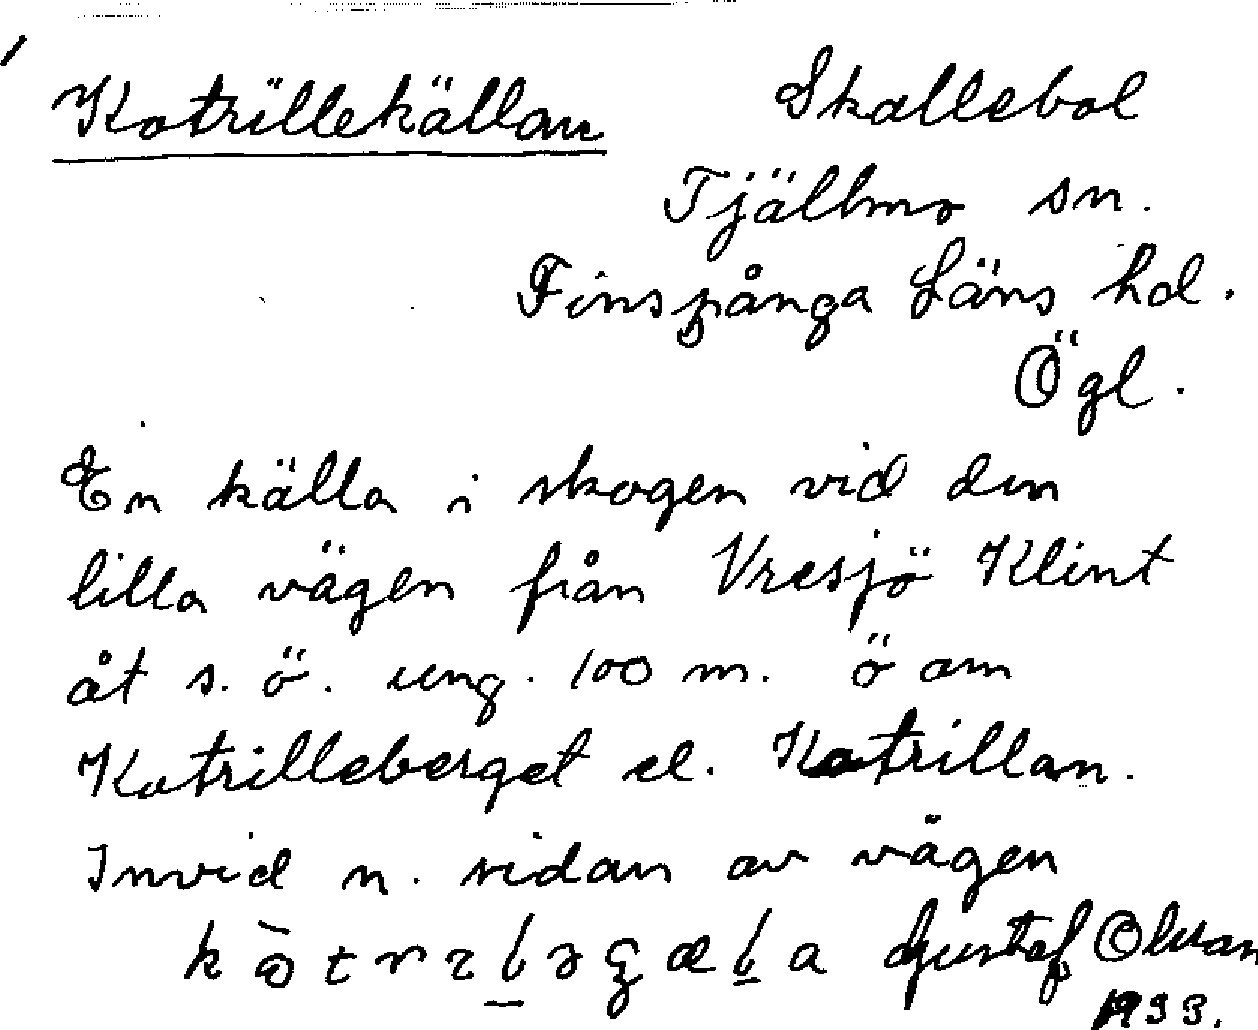 Kotrillekällan Skallebol
Tjällmo sn.
Finspånga Läns hd.
Ögl.
En källa i skogen vid den
lilla vägen från Vresjö Klint
åt s. ö. ung. 100 m. ö om
Kotrilleberget el. Kotrillan.
Invid n. sidan av vägen
Gustaf Olsson
1933.